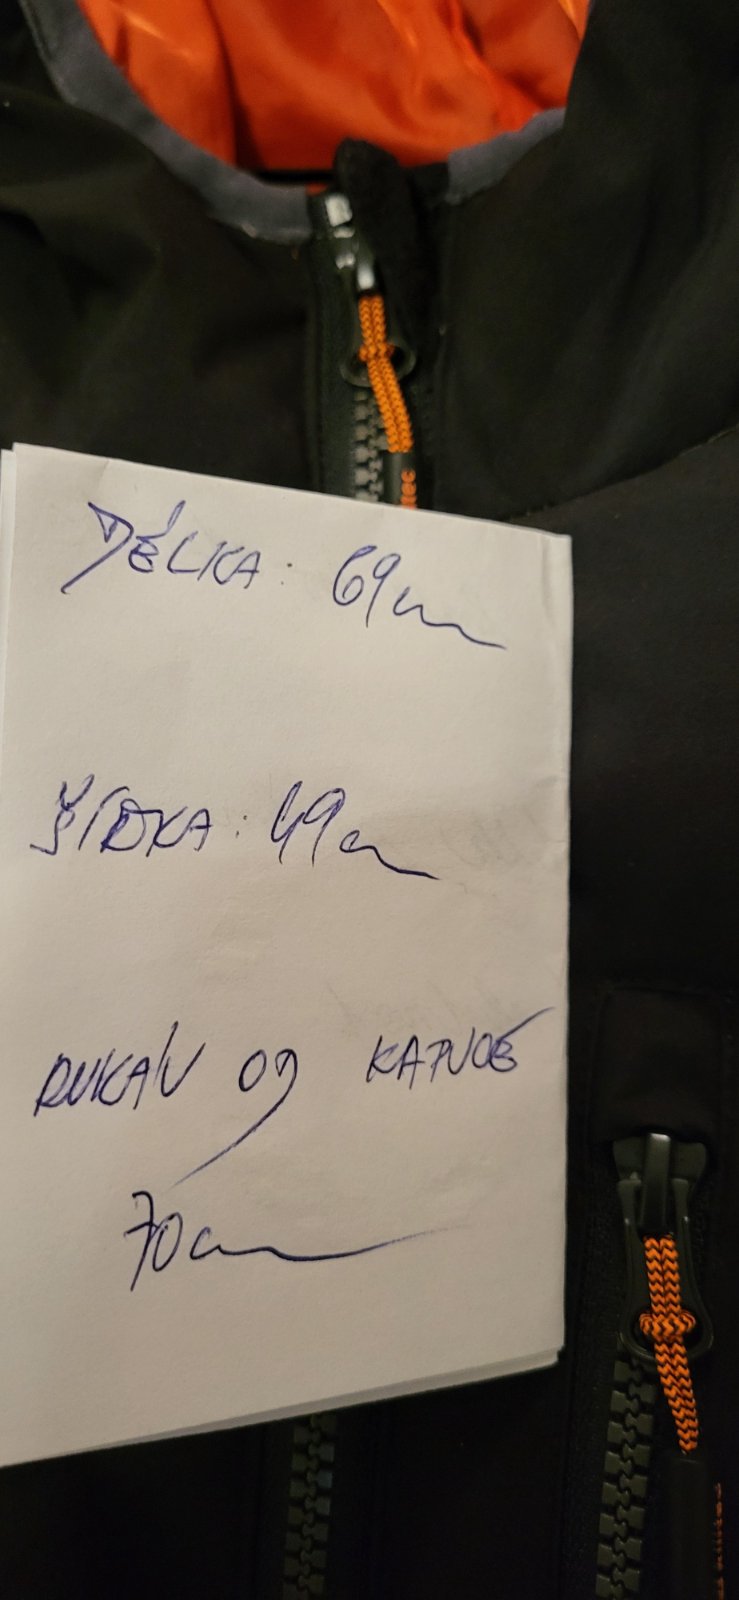 DÉLKA: 69cm
ŠÍŘKA: 49cm
RUKÁV OD KAPUCE
70cm
tec